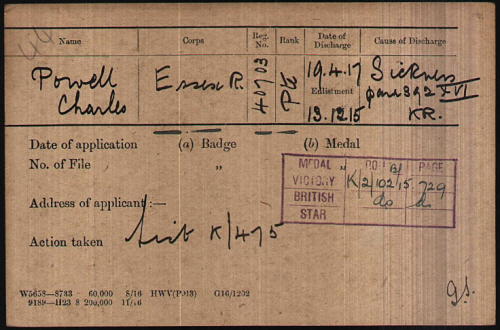 Name Corps Reg. No. Rank Date of Discharge Cause of Discharge
Powell Charles Essex R. 40703 Pte 19.4.17 Sickness
Enlistment para 392 XVI
13.12.15 KR.
Date of application (a) Badge (b) Medal
No. of File " "
MEDAL RO BJ PAGE
VICTORY K/2/102/B15 729
BRITISH do do
STAR
Address of applicant:—
Action taken List K/475
W5658—8733 60,000 8/16 HWV(P043) G16/1202
9189—H23 8 200,000 11/16
g.s.